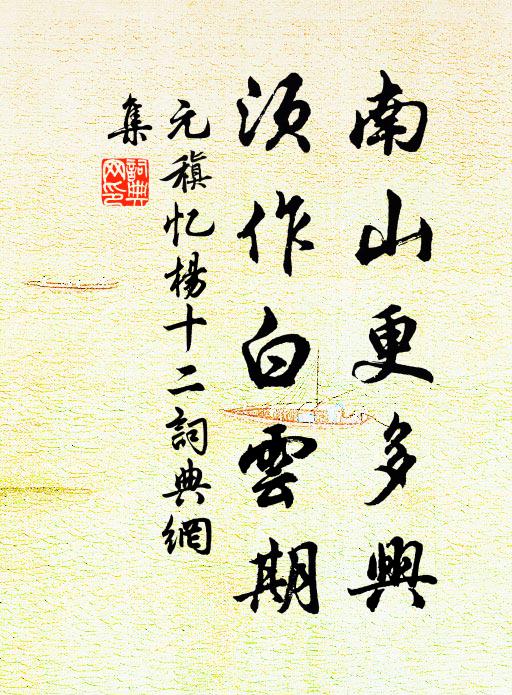 南山更多興
須作白雲期
元稹忆楊十二詞典網
集
詞典
网印